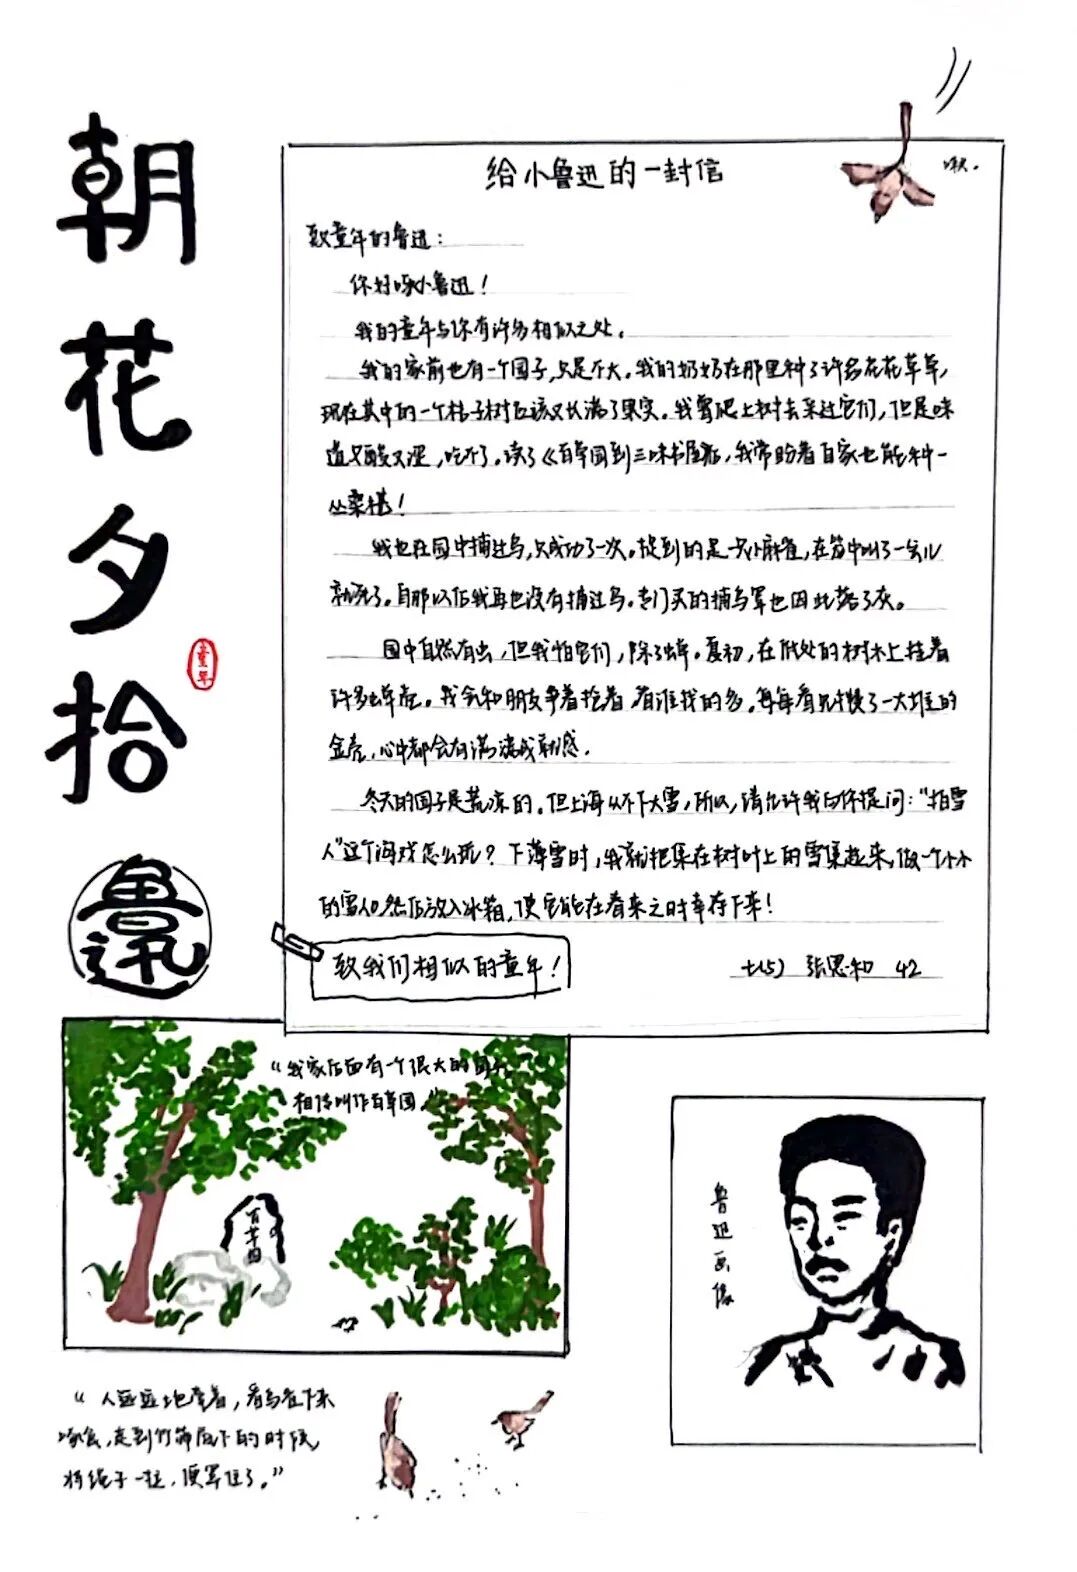 朝花夕拾
童年
鲁迅
给小鲁迅的一封信
啾.
致童年的鲁迅：
你好呀小鲁迅！
我的童年与你有许多相似之处。
我的家前也有一个园子,只是不大。我的奶奶在那里种了许多花花草草,
现在其中的一个桔子树应该又长满了果实。我曾爬上树去采过它们,但是味
道又酸又涩,吃不了。读了《百草园到三味书屋后,我常盼着自家也能种一
丛桑椹！
我也在园中捕过鸟,只成功了一次。捉到的是一只小麻雀,在笼中叫了一会儿
就死了。自那以后我再也没有捕过鸟。专门买的捕鸟罩也因此落了灰。
园中自然有虫,但我怕它们,除了蝉。夏初,在低处的树木上挂着
许多蝉壳。我会和朋友争着抢着,看谁找的多。每每看见攒了一大堆的
金壳,心中都会有满满成就感.
冬天的园子是荒凉的。但上海从不下大雪,所以,请允许我向你提问："拍雪
人"这个游戏怎么玩？下薄雪时,我就把集在树叶上的雪集起来,做一个小小
的雪人。然后放入冰箱,使它能在春来之时幸存下来！
致我们相似的童年！
七(5) 张思和 42
"我家后面有一个很大的园子,
相传叫作百草园."
百草园
鲁迅画像
"人远远地牵着,看鸟雀下来
啄食,走到竹筛底下的时候,
将绳子一拉,便罩住了。"